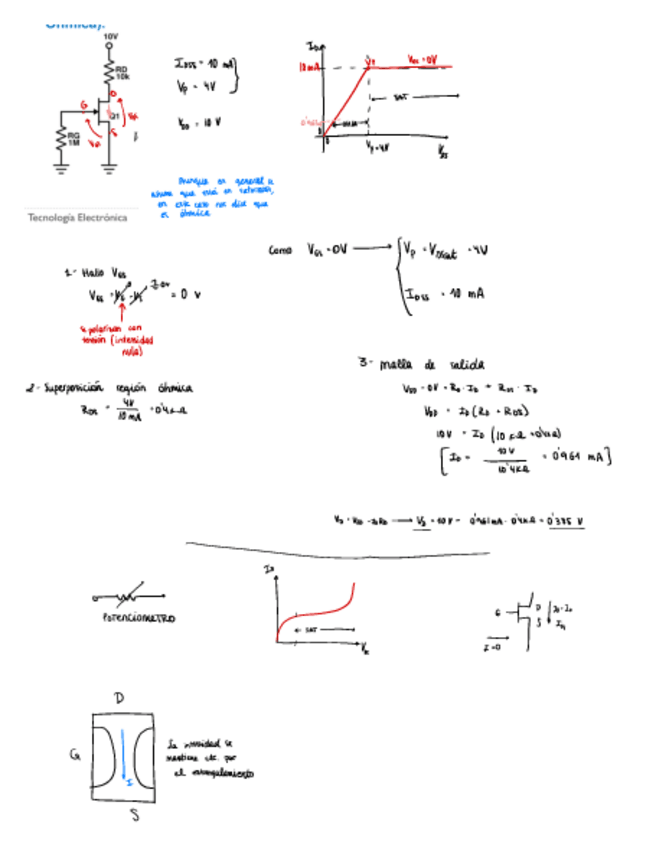 Óhmica).
10V
RD
10k
D
G
Q1
S
RG
1M
IDSS = 10 mA
Vp = 4V
VDD = 10 V
ID
10 mA
Vp
VGS = 0V
SAT
Vp = 4V
VDS
Aunque en general se
asume que está en saturación,
en este caso nos dice que
es óhmica
Tecnología Electrónica
Como VGS = 0V
Vp = VDSsat = 4V
IDSS = 10 mA
1- Hallo VGS
= 0 V
Se polarizan con
tensión (intensidad
nula)
2- Superposición región óhmica
RDS = 4V / 10 mA = 0'4 kΩ
3- Malla de salida
VDD - 0V = RD · ID + RDS · ID
VDD = ID (RD + RDS)
10V = ID (10 kΩ + 0'4kΩ)
[ID = 10V / 10'4kΩ = 0'961 mA]
= 10V - 0'961mA · 0'4kΩ = 0'385 V
POTENCIOMETRO
ID
SAT
G
D
S
I=0
D
G
I
S
La intensidad se
mantiene cte. por
el estrangulamiento